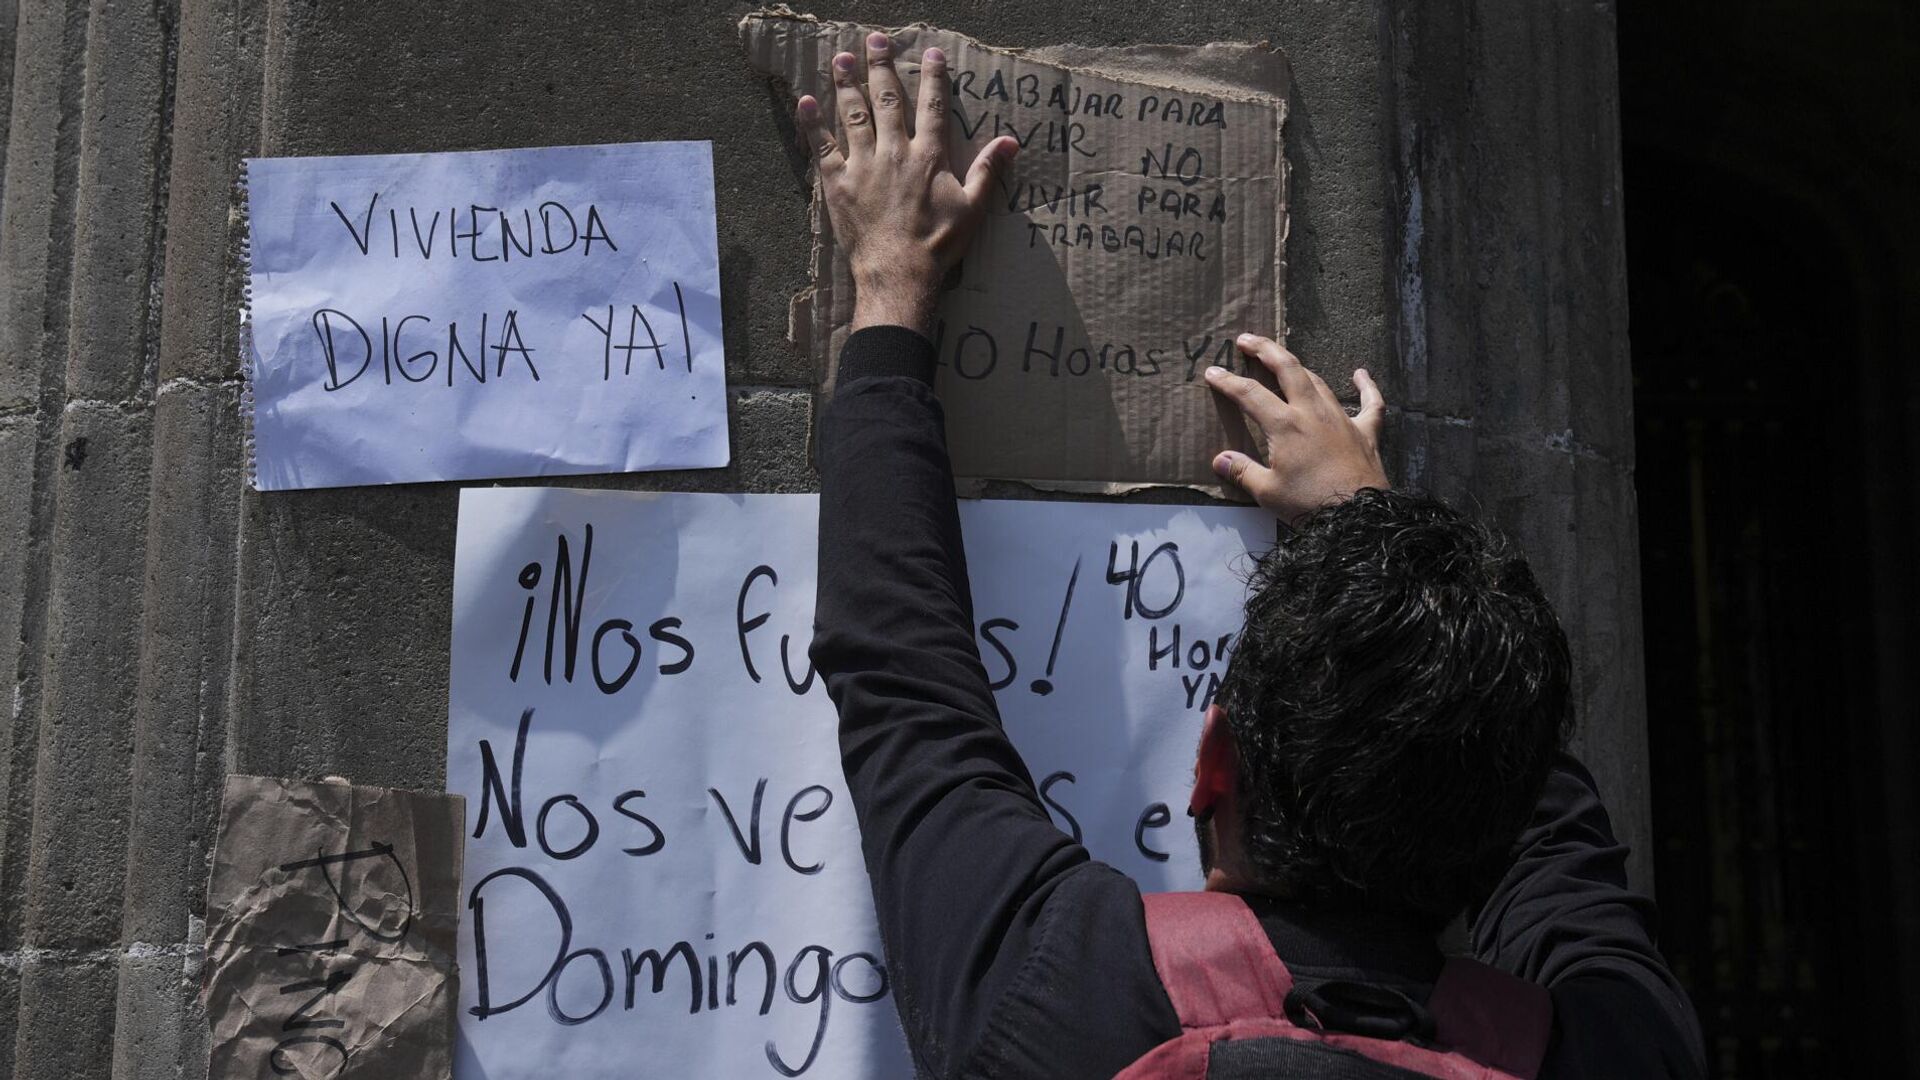 VIVIENDA
DIGNA YA!
TRABAJAR PARA
VIVIR NO
VIVIR PARA
TRABAJAR
40 Horas YA
¡Nos
40
YA
Nos
Domingo